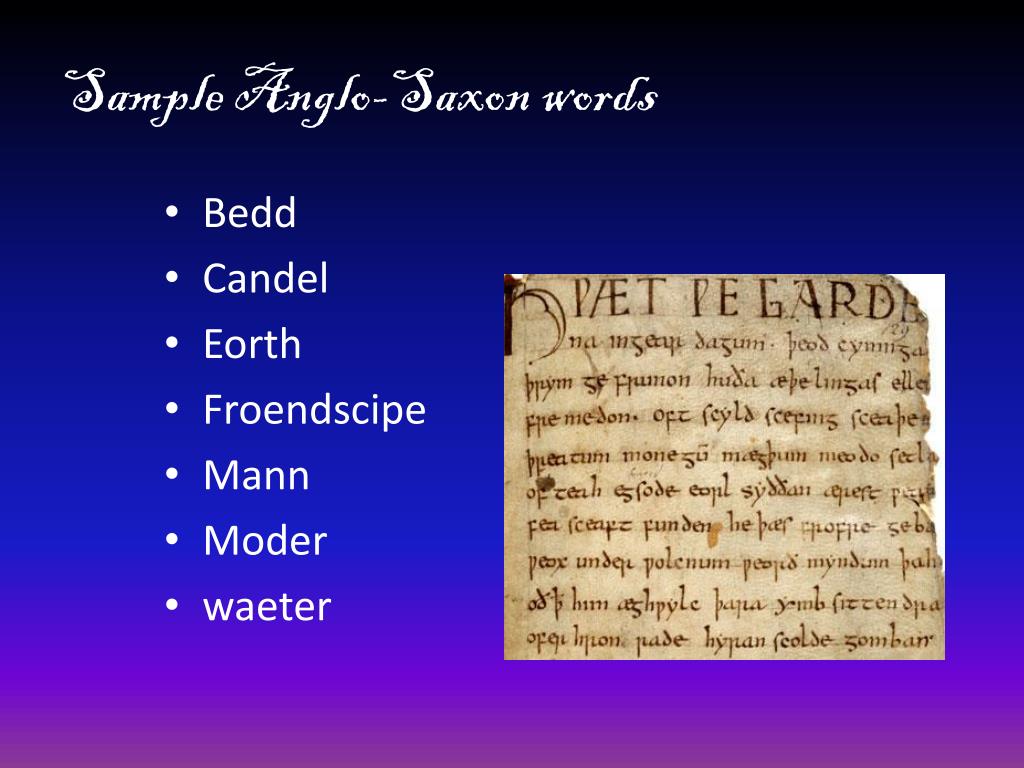 Sample Anglo-Saxon words
• Bedd
• Candel
• Eorth
• Froendscipe
• Mann
• Moder
• waeter
HǷÆT ǷE GARDE
na ingear dagum. þeod cyninga
þrym ge frunon huða æþelingas elle
fremedon. oft scyld scefing sceaþe
þreatum monegū mægþum meodo setla
of teah egsode eorl syððan ærest
fea sceaft funden he þæs frofre geba
ƿeox under ƿolcnum ƿeorð myndum þah
oð ꝥ him æghƿylc þara ymb sittendra
ofer hron rade hyran scolde gomban